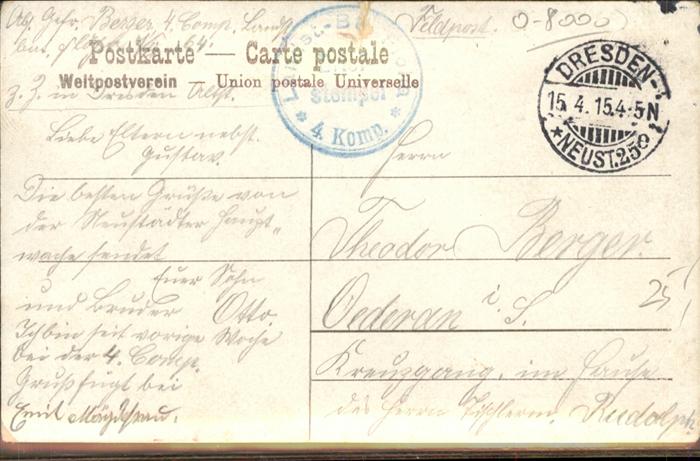 Abs. Gefr. Berger, 4. Comp. Landst.
Feldpost.
0-8000
Postkarte — Carte postale
Weltpostverein — Union postale Universelle
z. Z. in Dresden Altst.
Stempel
* 4. Komp. *
DRESDEN-
15.4.15.4-5N
*NEUST.25
Liebe Eltern nebst
Gustav.
Die besten Grüße von
der Neustädter Haupt„
wache sendet
Euer Sohn
und Bruder Otto
Ich bin seit vorige Woche
bei der 4. Comp.
Gruß fügt bei
Emil
Herrn
Theodor Berger.
Oederan i. S.
Kreuzgang, im Hause
des Herrn Tischlerm. Rudolph.
25